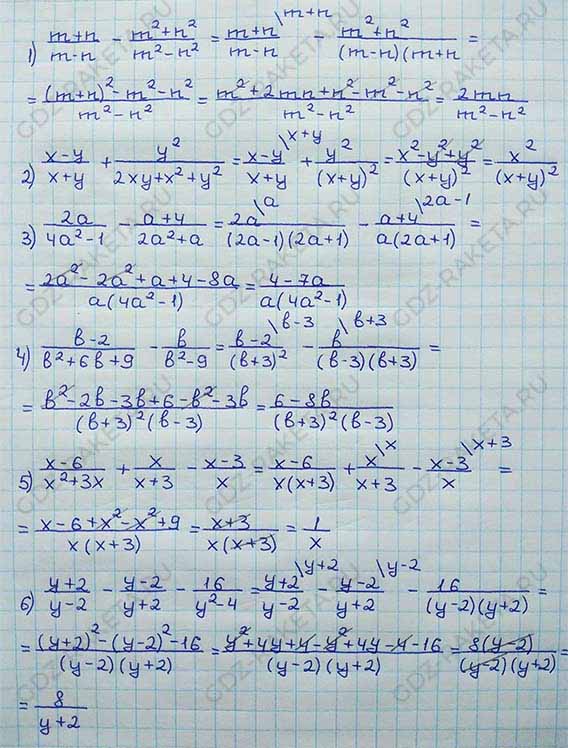 1) (m+n)/(m-n) - (m²+n²)/(m²-n²) = (m+n)/(m-n) \m+n - (m²+n²)/((m-n)(m+n) =
= ((m+n)²-m²-n²)/(m²-n²) = (m²+2mn+n²-m²-n²)/(m²-n²) = 2mn/(m²-n²)
2) (x-y)/(x+y) + y²/(2xy+x²+y²) = (x-y)/(x+y) \x+y + y²/(x+y)² = (x²-y²+y²)/(x+y)² = x²/(x+y)²
3) 2a/(4a²-1) - (a+4)/(2a²+a) = 2a/((2a-1)(2a+1)) \a - (a+4)/(a(2a+1)) \2a-1 =
= (2a²-2a²+a+4-8a)/(a(4a²-1)) = (4-7a)/(a(4a²-1))
4) (в-2)/(в²+6в+9) - в/(в²-9) = (в-2)/(в+3)² \в-3 - в/((в-3)(в+3)) \в+3 =
= (в²-2в-3в+6-в²-3в)/((в+3)²(в-3)) = (6-8в)/((в+3)²(в-3))
5) (x-6)/(x²+3x) + x/(x+3) - (x-3)/x = (x-6)/(x(x+3)) + x/(x+3) \x - (x-3)/x \x+3 =
= (x-6+x²-x²+9)/(x(x+3)) = (x+3)/(x(x+3)) = 1/x
6) (y+2)/(y-2) - (y-2)/(y+2) - 16/(y²-4) = (y+2)/(y-2) \y+2 - (y-2)/(y+2) \y-2 - 16/((y-2)(y+2)) =
= ((y+2)²-(y-2)²-16)/((y-2)(y+2)) = (y²+4y+4-y²+4y-4-16)/((y-2)(y+2)) = 8(y-2)/((y-2)(y+2)) =
= 8/(y+2)
GDZ-RAKETA.RU